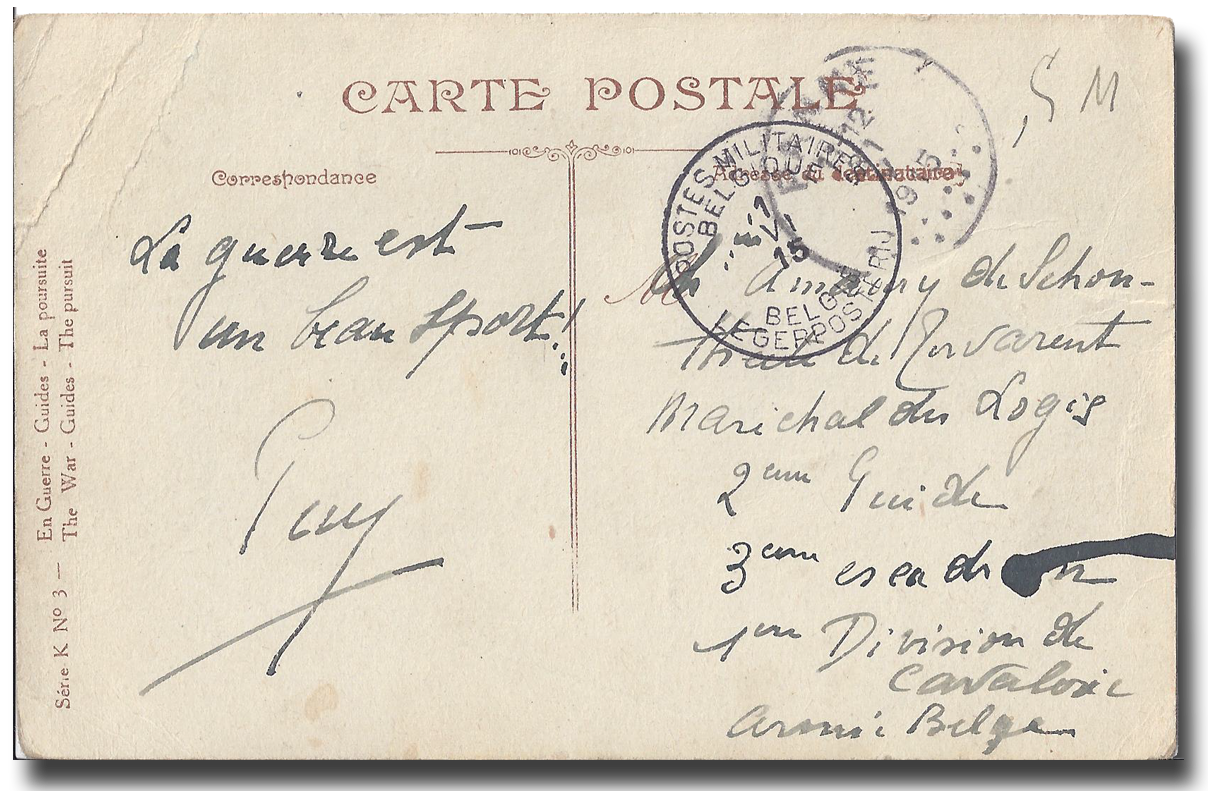 CARTE POSTALE
S M
Correspondance
Adresse du destinataire
POSTES MILITAIRES
BELGIQUE
1
V
15
BELGIË
LEGERPOSTERIJ
12
1915
La guerre est
un beau sport!..
Guy
M Amaury de Schou-
theete de Tervarent
Marichal des Logis
2eme Guide
3eme escadron
1ere Division de
Cavalerie
Armée Belge
Série K Nº 3 — En Guerre - Guides - La poursuite
The War - Guides - The pursuit